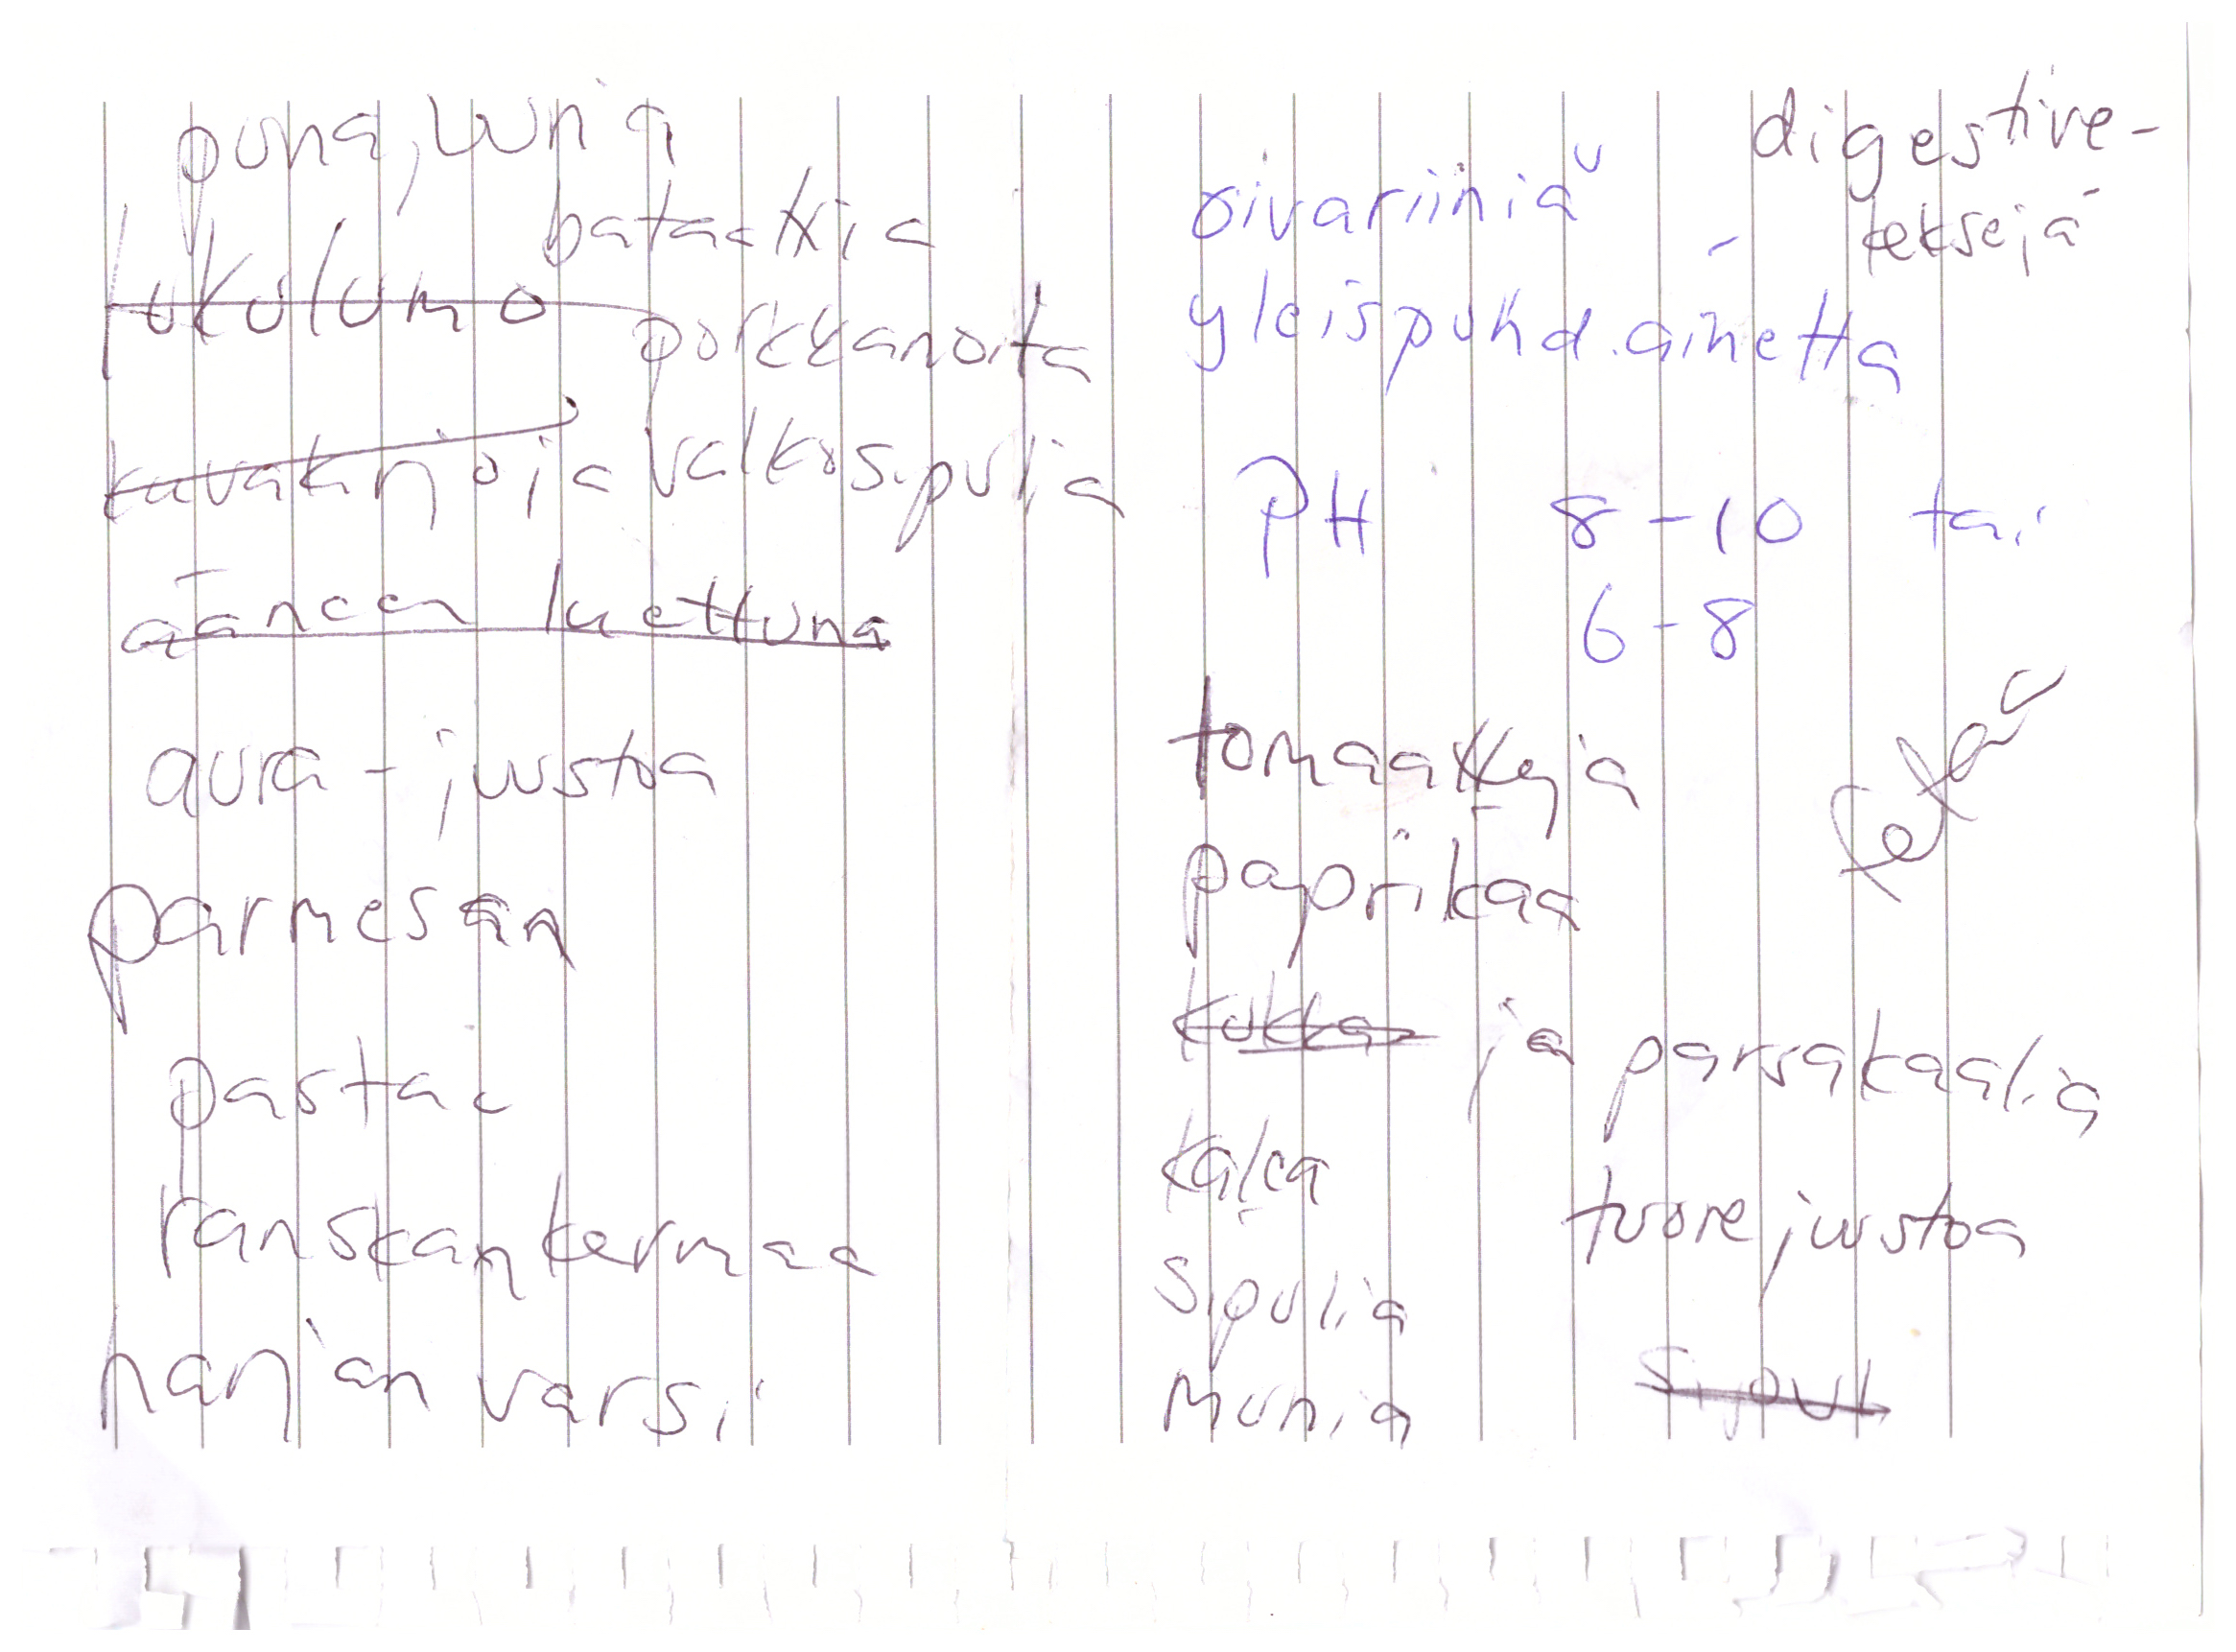 punajuuria
bataattia
lukulumo
porkkanoita
kuvakirjoja
valkosipulia
ääneen luettuna
aura-juustoa
parmesan
pastaa
ranskankermaa
harjanvarsi
digestive-
keksejä
oivariinia
yleispuhd.ainetta
PH 8-10 tai
6-8
tomaatteja
fetaa
paprikaa
kukka ja parsakaalia
kalaa
tuorejuustoa
sipulia
sipuli
munia